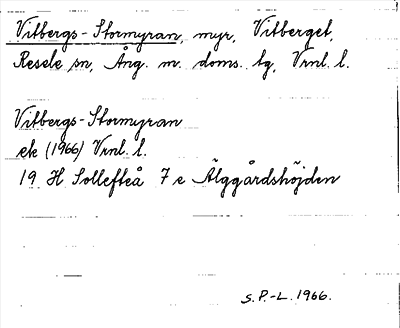 Vitbergs-Stormyran, myr, Vitberget,
Resele sn, Ång. m. doms. tg, Vrnl. l.
Vitbergs-Stormyran
ek (1966) Vrnl. l.
19 H Sollefteå 7 e Älggårdshöjden
S.P.-L. 1966.